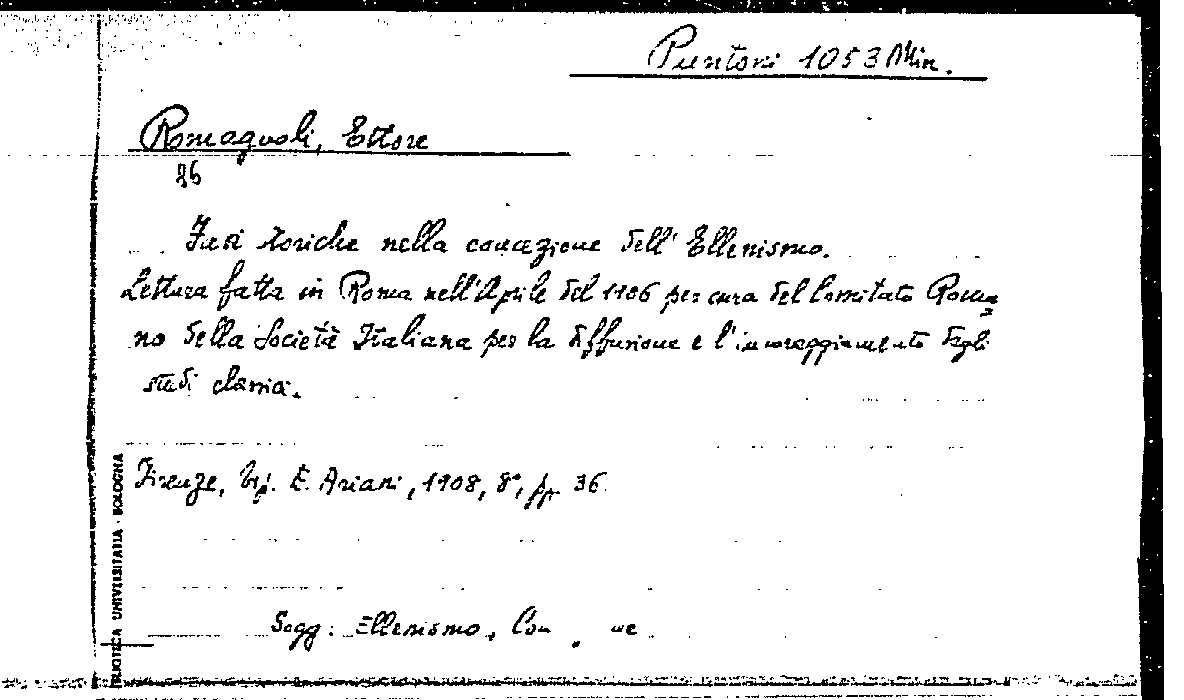 Puntoni 1053 Min.
Romagnoli, Ettore
86
Fasi storiche nella concezione dell' Ellenismo.
Lettura fatta in Roma nell'Aprile del 1906 per cura del Comitato Roma
no della Società Italiana per la diffusione e l'incoraggiamento degli
studi classici.
Firenze, tip. E. Ariani, 1908, 8°, pp. 36.
Sogg: Ellenismo,
BIBLIOTECA UNIVERSITARIA - BOLOGNA